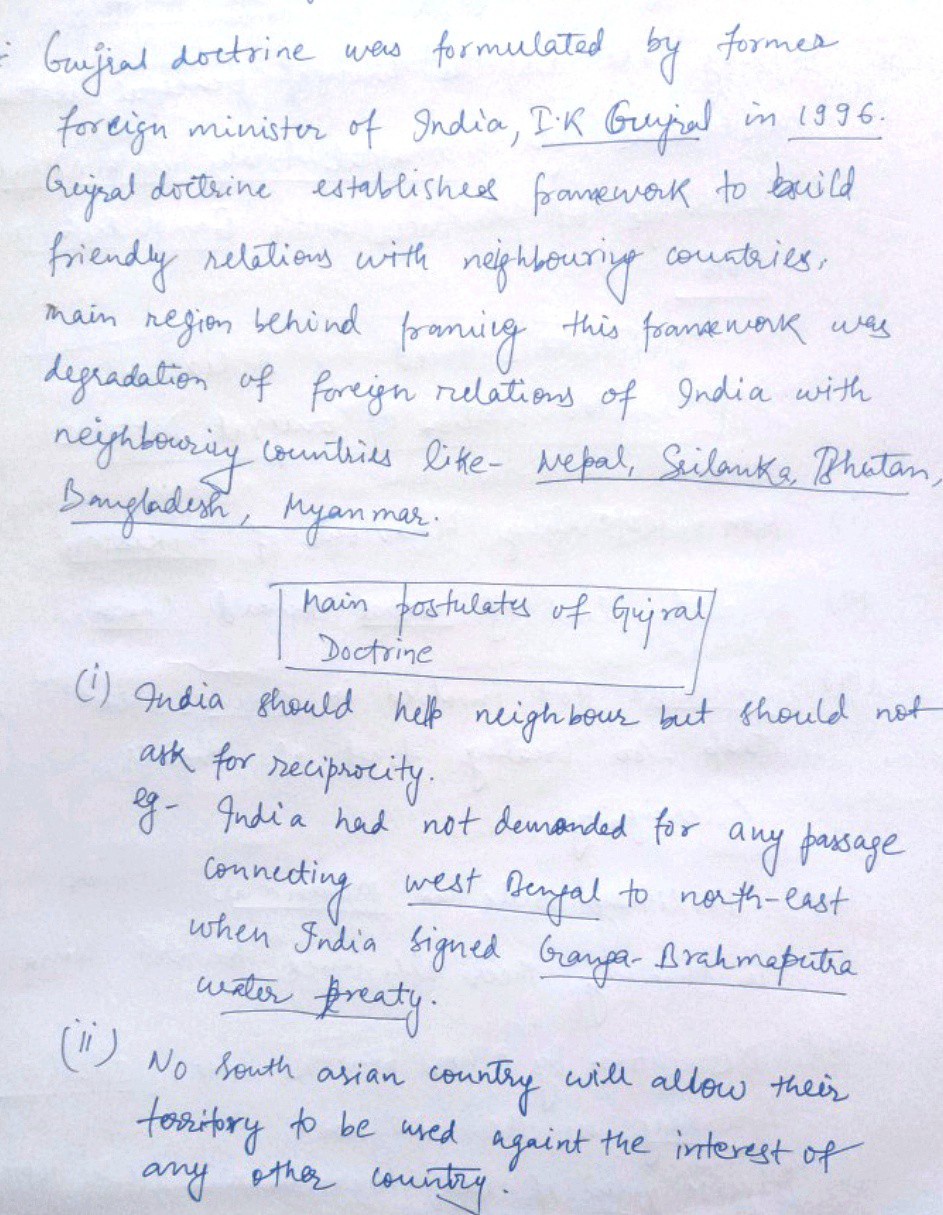 Gujral doctrine was formulated by former
foreign minister of India, I.K Gujral in 1996.
Gujral doctrine established framework to build
friendly relations with neighbouring countries,
main region behind framing this framework was
degradation of foreign relations of India with
neighbouring countries like- Nepal, Srilanka, Bhutan,
Bangladesh, Myanmar.
Main postulates of Gujral
Doctrine
(i) India should help neighbour but should not
ask for reciprocity.
eg- India had not demanded for any passage
connecting west Bengal to north-east
when India signed Ganga-Brahmaputra
water treaty.
(ii) No South asian country will allow their
territory to be used againt the interest of
any other country.